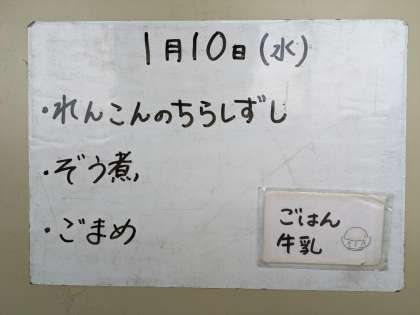 1月10日(水)
・れんこんのちらしずし
・ぞう煮
・ごまめ
ごはん
牛乳